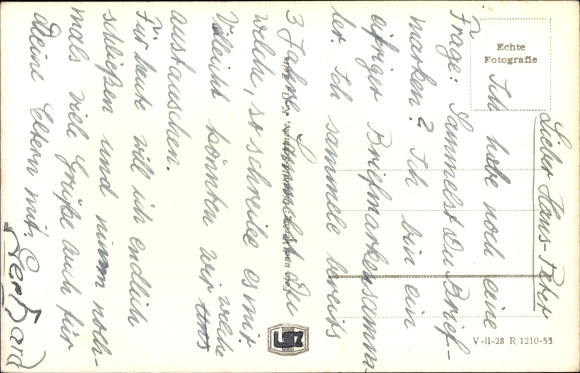 Lieber Hans-Peter
Ich habe noch eine
Frage: Sammelst Du Brief-
marken? Ich bin ein
eifriger Briefmarkensamm-
ler. Ich sammele bereits
3 Jahre. Sammelst Du
welch, so schreibe es mir
Vileicht könnten wir welch
austauschen.
Für heute will ich endlich
schließen und nimm noch-
mals viele Grüße auch für
deine Eltern mit.
Gerhard
Echte
Fotografie
V-11-28 R 1210-53